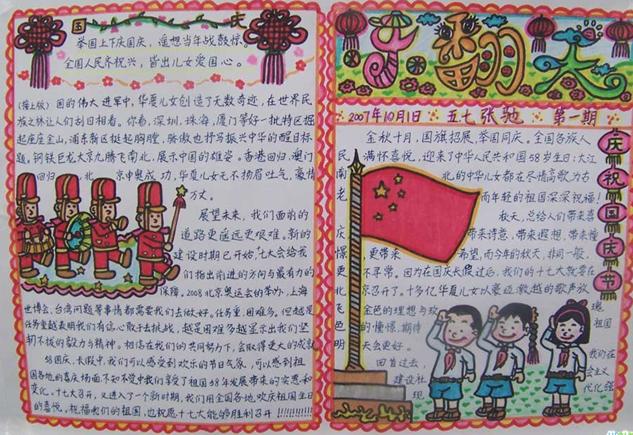 国 庆
举国上下庆国庆，遥想当年战鼓惊。
全国人民齐祝兴，皆出儿女爱国心。
(接上版) 国的伟大进军中，华夏儿女创造了无数奇迹，在世界民
族之林让人们刮目相看。你看，深圳，珠海，厦门等好一批特区掘
起座座金山，浦东新区挺起胸膛，骄傲也抒写振兴中华的醒目标
题，钢铁巨龙大京九腾飞南北，展示中国的雄姿。香港回归，澳门
回归，北京申奥成功，华夏儿女无不扬眉吐气，豪情
万丈。
展望未来，我们面前的
道路更遥远更艰难。新的
建设时期已开始，十七大会给我
们指出前进的方向与最有力的
保障。2008北京奥运会的举办，上海
世博会，台湾问题等事情都需要我们去做好。任务重，困难多。但越是
任务重越表明我们有信心敢于去挑战，越是困难多越显示出我们坚
韧不拔的毅力与精神。相信在我们的共同努力下，会取得更大的成就
58国庆，长假中，我们可以感受到欢乐的节日气氛，可以感到祖
国各地的喜庆场面，不知不觉中我们享受了祖国58年发展带来的实惠和
变化。十七大召开，又进入了一个新时期，我们用全国各地欢庆祖国生日
的喜悦，祝福我们的祖国，也祝愿十七大能够胜利召开!!!!!!!!!
手翻大
2007年10月1日 五七 张驰 第一期
庆祝国庆节
金秋十月，国旗招展，举国同庆。全国各族人
民满怀喜悦，迎来了中华人民共和国58岁生日；大江
南北的中华儿女都在尽情高歌为古
老而年轻的祖国深深祝福！
秋天，总给人们带来喜
庆带来诗意，带来遐想，带来憧
憬更带来希望，而今年的秋天，非同一般，
更不寻常。因为在国庆长假过后，我们的十七大就要在
北京召开了。十多亿华夏儿女以豪迈、激越的歌声放
飞金色的理想与欢
色的憧憬，期待祖国
明天会更好。
回首过去，我们在
建设社会主义
现代化强